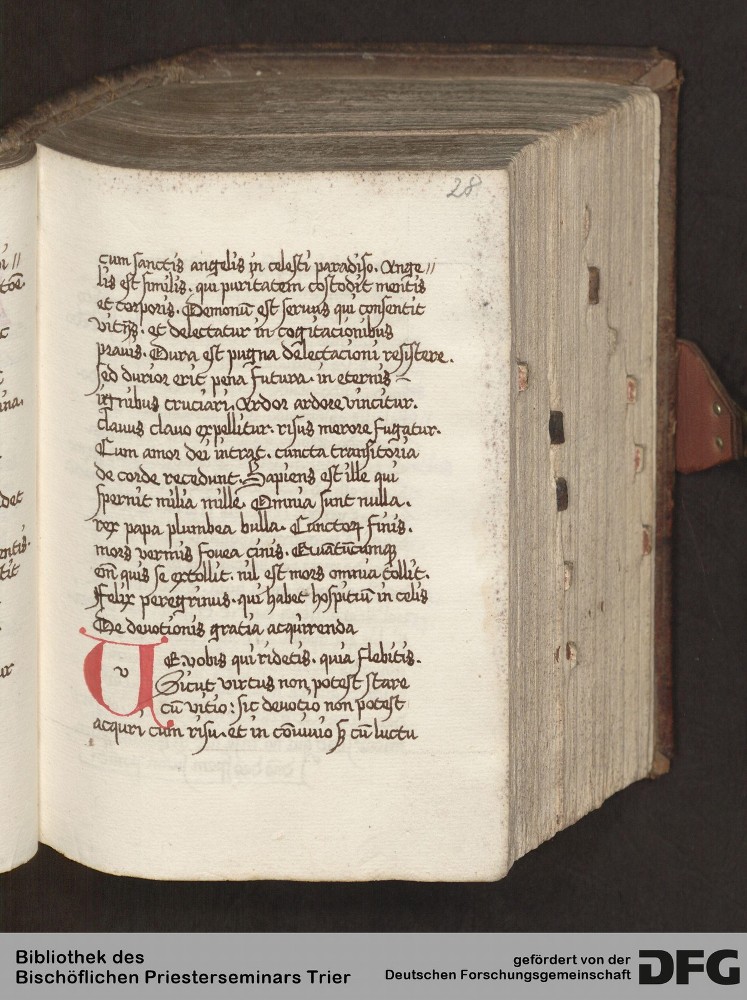 28
cum sanctis angelis in celesti paradiso. Ange//
lis est similis. qui puritatem costodit mentis
et corporis. Demonū est seruus qui consentit
vitijs. et delectatur in cogitacionibus
prauis. Dura est pugna delectacioni resistere.
sed durior erit pena futura. in eternis
ignibus cruciari. Ardor ardore vincitur.
clauus clauo expellitur. risus merore fugatur.
Cum amor dei intrat. cuncta transitoria
de corde recedunt. Sapiens est ille qui
spernit milia mille. Omnia sunt nulla.
rex papa plumbea bulla. Cunctorꝫ finis.
mors vermis fouea cinis. 
em̄ quis se extollit. nil est mors omnia tollit.
Felix peregrinus. qui habet hospitiū in celis
De deuotionis gratia acquirenda
V E vobis qui ridetis. quia flebitis.
v Sicut virtus non potest stare
cū vitio: sic deuotio non potest
acquri cum risu. et in cōuiuio sꝫ cū luctu
Bibliothek des
Bischöflichen Priesterseminars Trier
gefördert von der
Deutschen Forschungsgemeinschaft
DFG